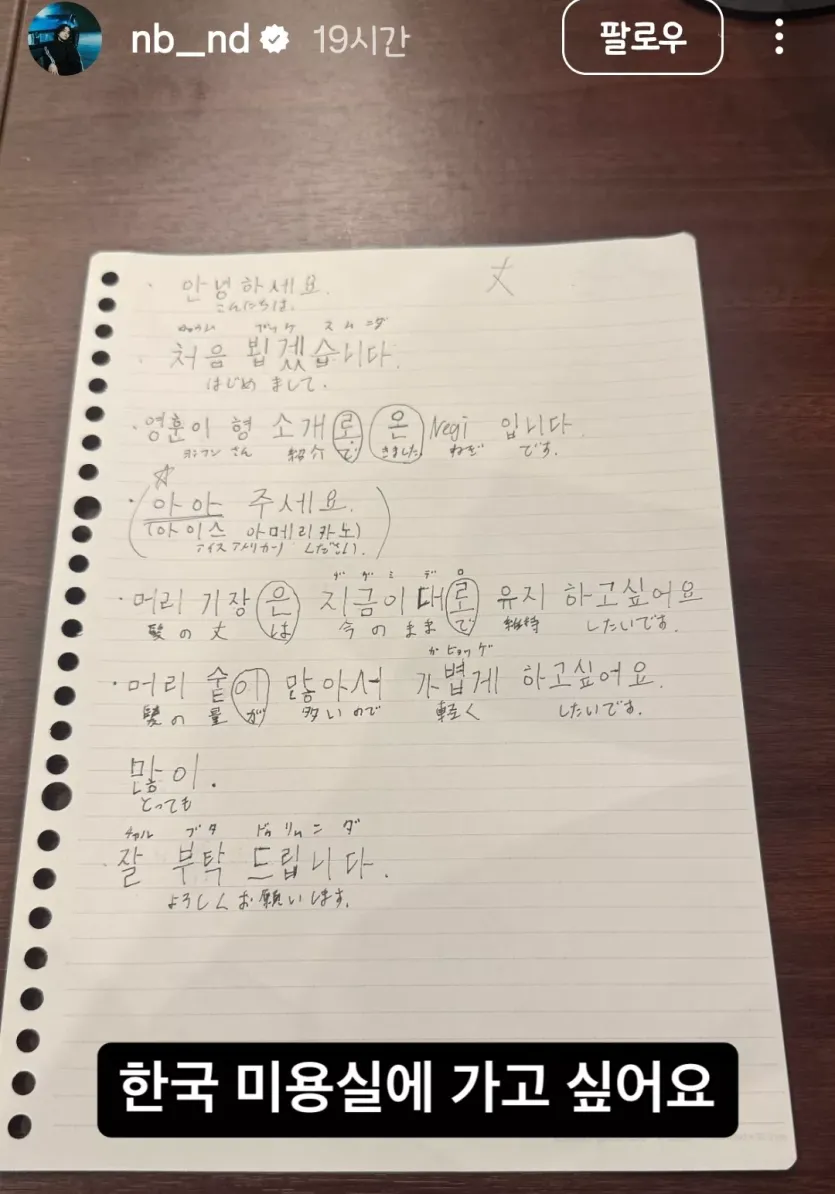 nb__nd 19시간 팔로우
· 안녕하세요. 丈
こんにちは.
ブッケ スムニダ
· 처음 뵙겠습니다.
はじめまして.
· 영훈이 형 소개로 온 Negi 입니다
ヨンフンさん 紹介で きました ねぎ です.
☆
· (아아 주세요.
(아이스 아메리카노)
アイスアメリカーノ ください).
ヂグミデロ
· 머리 기장은 지금이대로 유지 하고싶어요
髪の丈は 今のままで 維持 したいです.
カビョッゲ
· 머리 숱이 많아서 가볍게 하고싶어요.
髪の量が 多いので 軽く したいです.
많이.
とっても
チャル ブタ ドゥリムニダ
· 잘 부탁 드립니다.
よろしくお願いします.
한국 미용실에 가고 싶어요